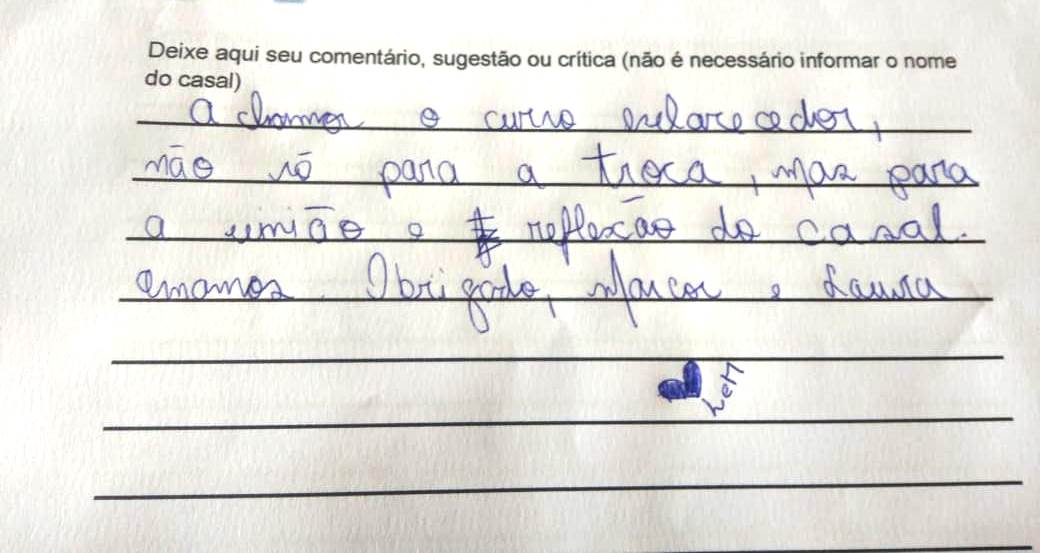 Deixe aqui seu comentário, sugestão ou crítica (não é necessário informar o nome
do casal)
a chamos o curso esclarecedor,
não só para a troca, mas para
a união e reflexão do casal.
amamos. Obrigado, Marcos e Laura
LeM